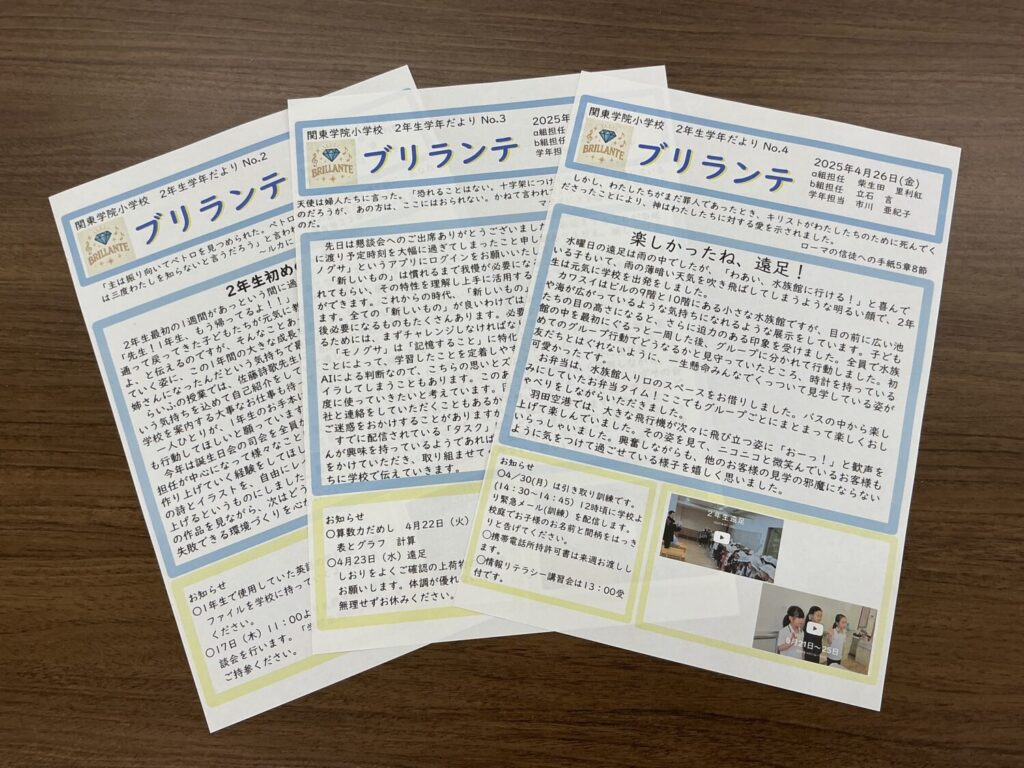 関東学院小学校 2年生学年だより No.2
BRILLANTE
ブリランテ
「主は振り向いてペトロを見つめられた。ペトロ
は三度わたしを知らないと言うだろう」と言わ
～ルカに
2年生初め
2年生最初の1週間があっという間に過
「先生!1年生、もう帰ってるよ!!」
通って戻ってきた子どもたちが元気に教
よ、と伝えるのですが、そんなことあ
ていく姿に、この1年間の大きな成長
姉さんになったんだという気持ちで最
らいふの授業では、佐藤詩歌先生
いう気持ちを込めて自己紹介をして
学校を案内する大事なお仕事も待
一人ひとりが、1年生のお手本に
も行動してほしいと願っています
今年は誕生日会の司会を全員が
担任が中心になって様々なこと
作り上げていく経験をしてほし
の詩とイラストを、自由にし
上げるというものにしました
の作品を見ながら、次はどう
失敗できる環境づくりを心が
お知らせ
○1年生で使用していた英語
ファイルを学校に持って
ください。
○17日(木)11:00よ
談会を行います。「学
ご持参ください。
関東学院小学校 2年生学年だより No.3
2025年
BRILLANTE
ブリランテ
a組担任
b組担任
学年担当
天使は婦人たちに言った。「恐れることはない。十字架につけ
のだろうが、あの方は、ここにはおられない。かねて言われて
のだ。
マ
先日は懇談会へのご出席ありがとうございました
に渡り予定時刻を大幅に過ぎてしまったこと申し
ノグサ」というアプリにログインをお願いいたし
「新しいもの」は慣れるまで我慢が必要にな
れてもらい、その特性を理解し上手に活用する
ができます。これからの時代、「新しいもの」
ります。全ての「新しいもの」が良いわけでは
後必要になるものもたくさんあります。必要
るためには、まずチャレンジしなければな
「モノグサ」は「記憶すること」に特化
ことによって、学習したことを定着しやす
AIによる判断なので、こちらの思いとズ
イラしてしまうこともあります。このあ
度に使っていきたいと考えています。「
社と連絡をしていただくこともあるか
ご迷惑をおかけすることがありますが
すでに配信されている「タスク」も
んが興味を持っているようであれば
をかけていただき、取り組ませて
ちに学校で伝えていきます。
お知らせ
○算数力だめし 4月22日(火)
表とグラフ 計算
○4月23日(水)遠足
しおりをよくご確認の上荷物
お願いします。体調が優れ
無理せずお休みください。
関東学院小学校 2年生学年だより No.4
2025年4月26日(金)
BRILLANTE
ブリランテ
a組担任 柴生田 里利紅
b組担任 立石 言
学年担当 市川 亜紀子
しかし、わたしたちがまだ罪人であったとき、キリストがわたしたちのために死んでく
ださったことにより、神はわたしたちに対する愛を示されました。
ローマの信徒への手紙5章8節
楽しかったね、遠足!
水曜日の遠足は雨の中でしたが、「わあい、水族館に行ける!」と喜んで
いる子もいて、雨の薄暗い天気を吹き飛ばしてしまうような明るい顔で、2年
生は元気に学校を出発をしました。
カワスイはビルの9階と10階にある小さな水族館ですが、目の前に広い池
や海が広がっているような気持ちになれるような展示をしています。子ども
たちの目の高さになると、さらに迫力のある印象を受けました。全員で水族
館の中を最初にぐるっと一周した後、グループに分かれて行動しました。初
めてのグループ行動でどうなるかと見守っていたところ、時計を持っている
友だちとはぐれないように、一生懸命みんなでくっついて見学している姿が
可愛かったです。
お弁当は、水族館入り口のスペースをお借りしました。バスの中から楽し
みにしていたお弁当タイム!ここでもグループごとにまとまって楽しくおし
ゃべりをしながらいただきました。
羽田空港では、大きな飛行機が次々に飛び立つ姿に「おーっ!」と歓声を
上げて楽しんでいました。その姿を見て、ニコニコと微笑んでいるお客様も
いらっしゃいました。興奮しながらも、他のお客様の見学の邪魔にならない
ように気をつけて過ごせている様子を嬉しく思いました。
お知らせ
○04/30(月)は引き取り訓練です。
(14:30~14:45)12時頃に学校よ
り緊急メール(訓練)を配信します。
校庭でお子様のお名前と間柄をはっき
りと告げてください。
○携帯電話所持許可書は来週お渡しし
ます。
○情報リテラシー講習会は13:00受
付です。
2年生遠足
4月21日～25日